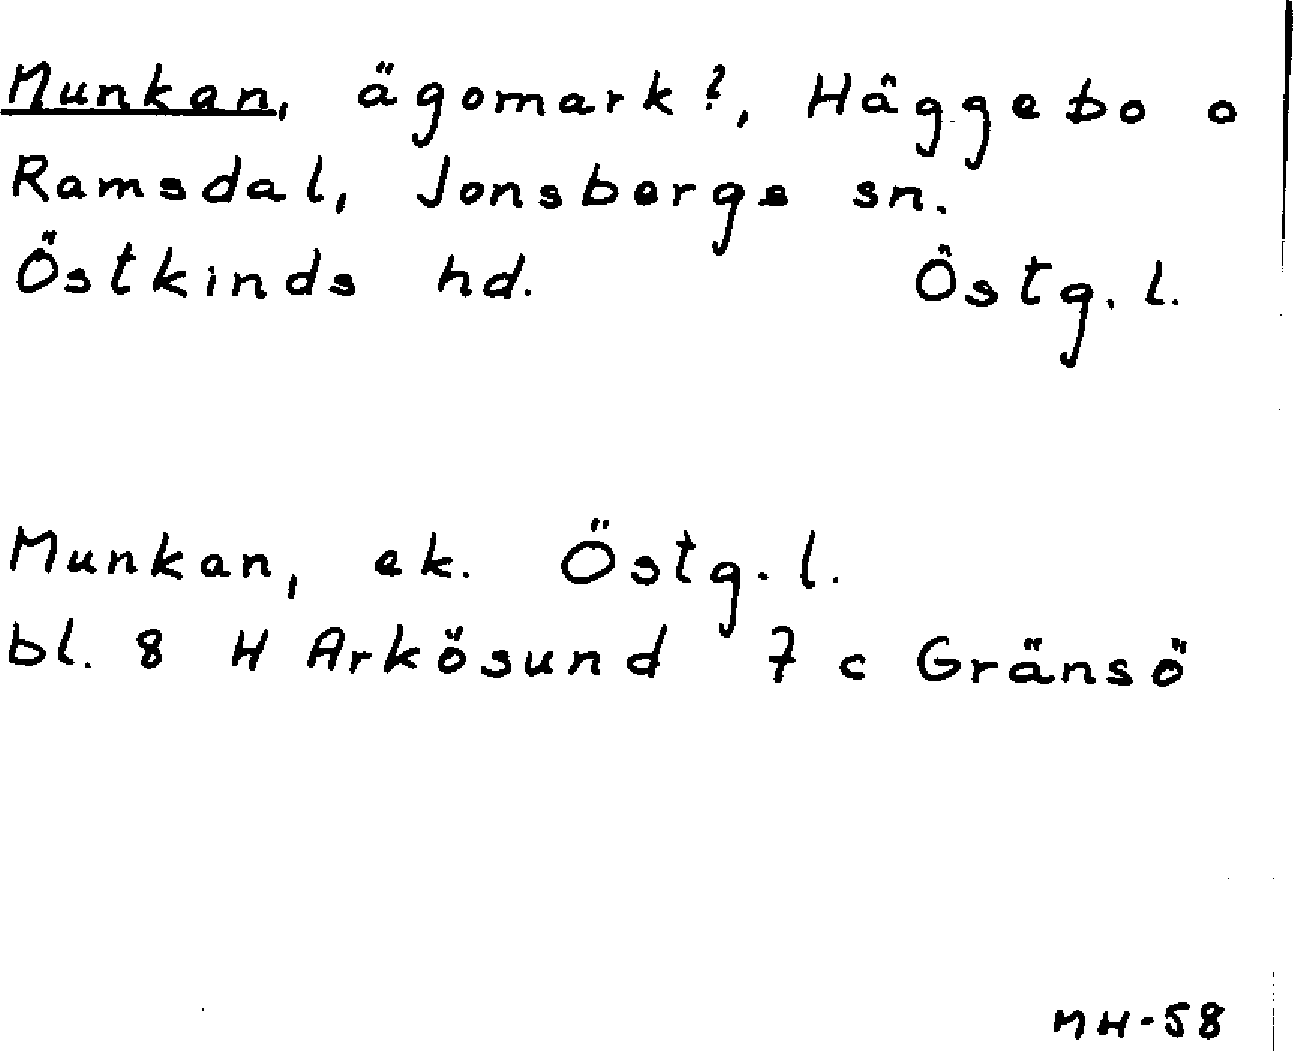 Munkan, ägomark?, Häggebo o
Ramsdal, Jonsbergs sn.
Östkinds hd. Östg. l.
Munkan, ek. Östg. l.
bl. 8 H Arkösund 7 c Gränsö
MH-58